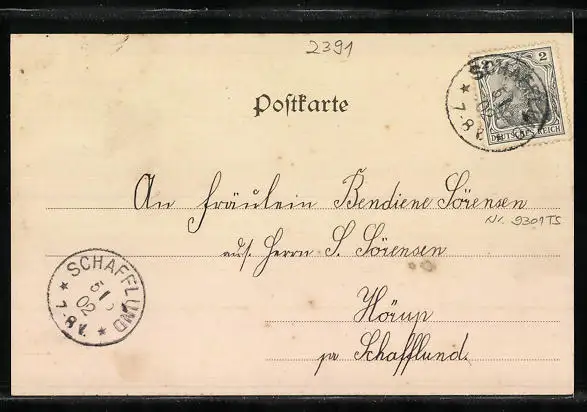 2391
2
DEUTSCHES REICH
Postkarte
An Fräulein Bendiene Sörensen
Nr. 9301TS
Herrn S. Sörensen
Hörup
pr Schafflund.
SCHAFFLUND
5 1
02
7-8 V.